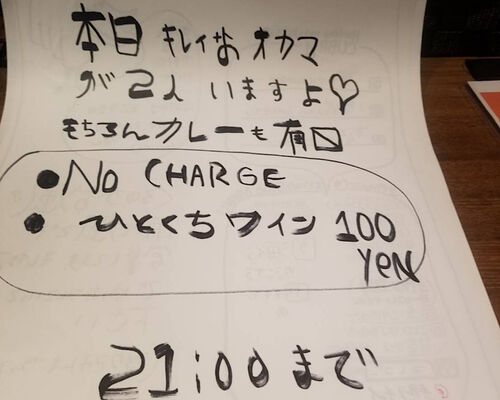 本日 キレイなオカマ
が2人 いますよ♡
もちろんカレーも有〼
●No CHARGE
● ひとくちワイン 100
YeN
21:00まで